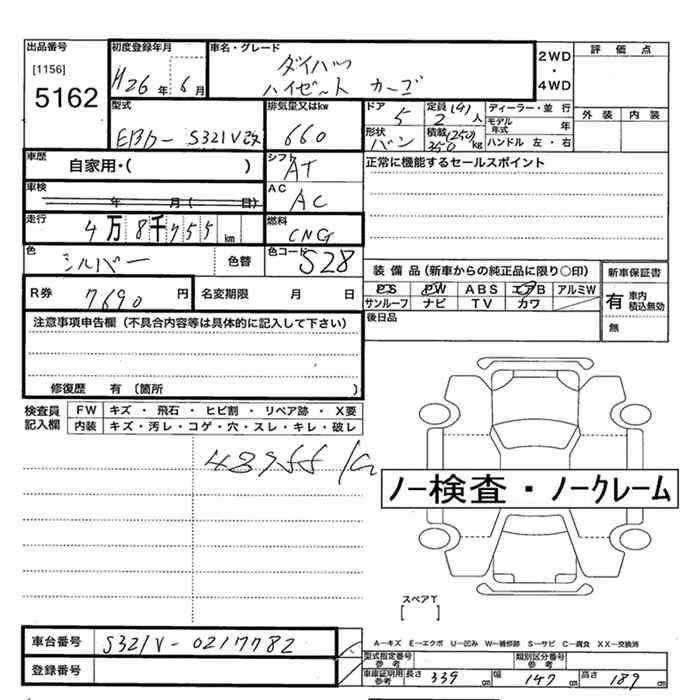 出品番号
[1156]
5162
初度登録年月
H26年 6月
車名・グレード
ダイハツ
ハイゼット カーゴ
2WD
・
4WD
評価点
外装 内装
型式
EBD- S321V改
排気量又はkw
660
ドア
5
定員 (4)人
2
形状
バン
積載 (250)kg
350
ディーラー・並行
モデル年式 年
ハンドル 左・右
車歴
自家用・( )
シフト
AT
正常に機能するセールスポイント
車検
年 月( 日)
AC
AC
走行
4万8千755km
燃料
CNG
色
シルバー
色替
色コード
S28
装備品(新車からの純正品に限り○印)
PS PW ABS エアB アルミW
サンルーフ ナビ TV カワ
新車保証書
有 車内積込無効
無
R券
7690円
名変期限 月 日
後日品
注意事項申告欄(不具合内容等は具体的に記入して下さい)
修復歴 有 (箇所 )
検査員記入欄
FW キズ・飛石・ヒビ割・リペア跡・X要
内装 キズ・汚レ・コゲ・穴・スレ・キレ・破レ
48755 km
ノー検査・ノークレーム
スペアT
[ ]
車台番号
S321V-0217782
登録番号
A―キズ E―エクボ U―凹み W―補修跡 S―サビ C―腐食 XX―交換済
型式指定番号 参考
類別区分番号 参考
車庫証明用 参考
長さ 339cm 幅 147cm 高さ 189cm